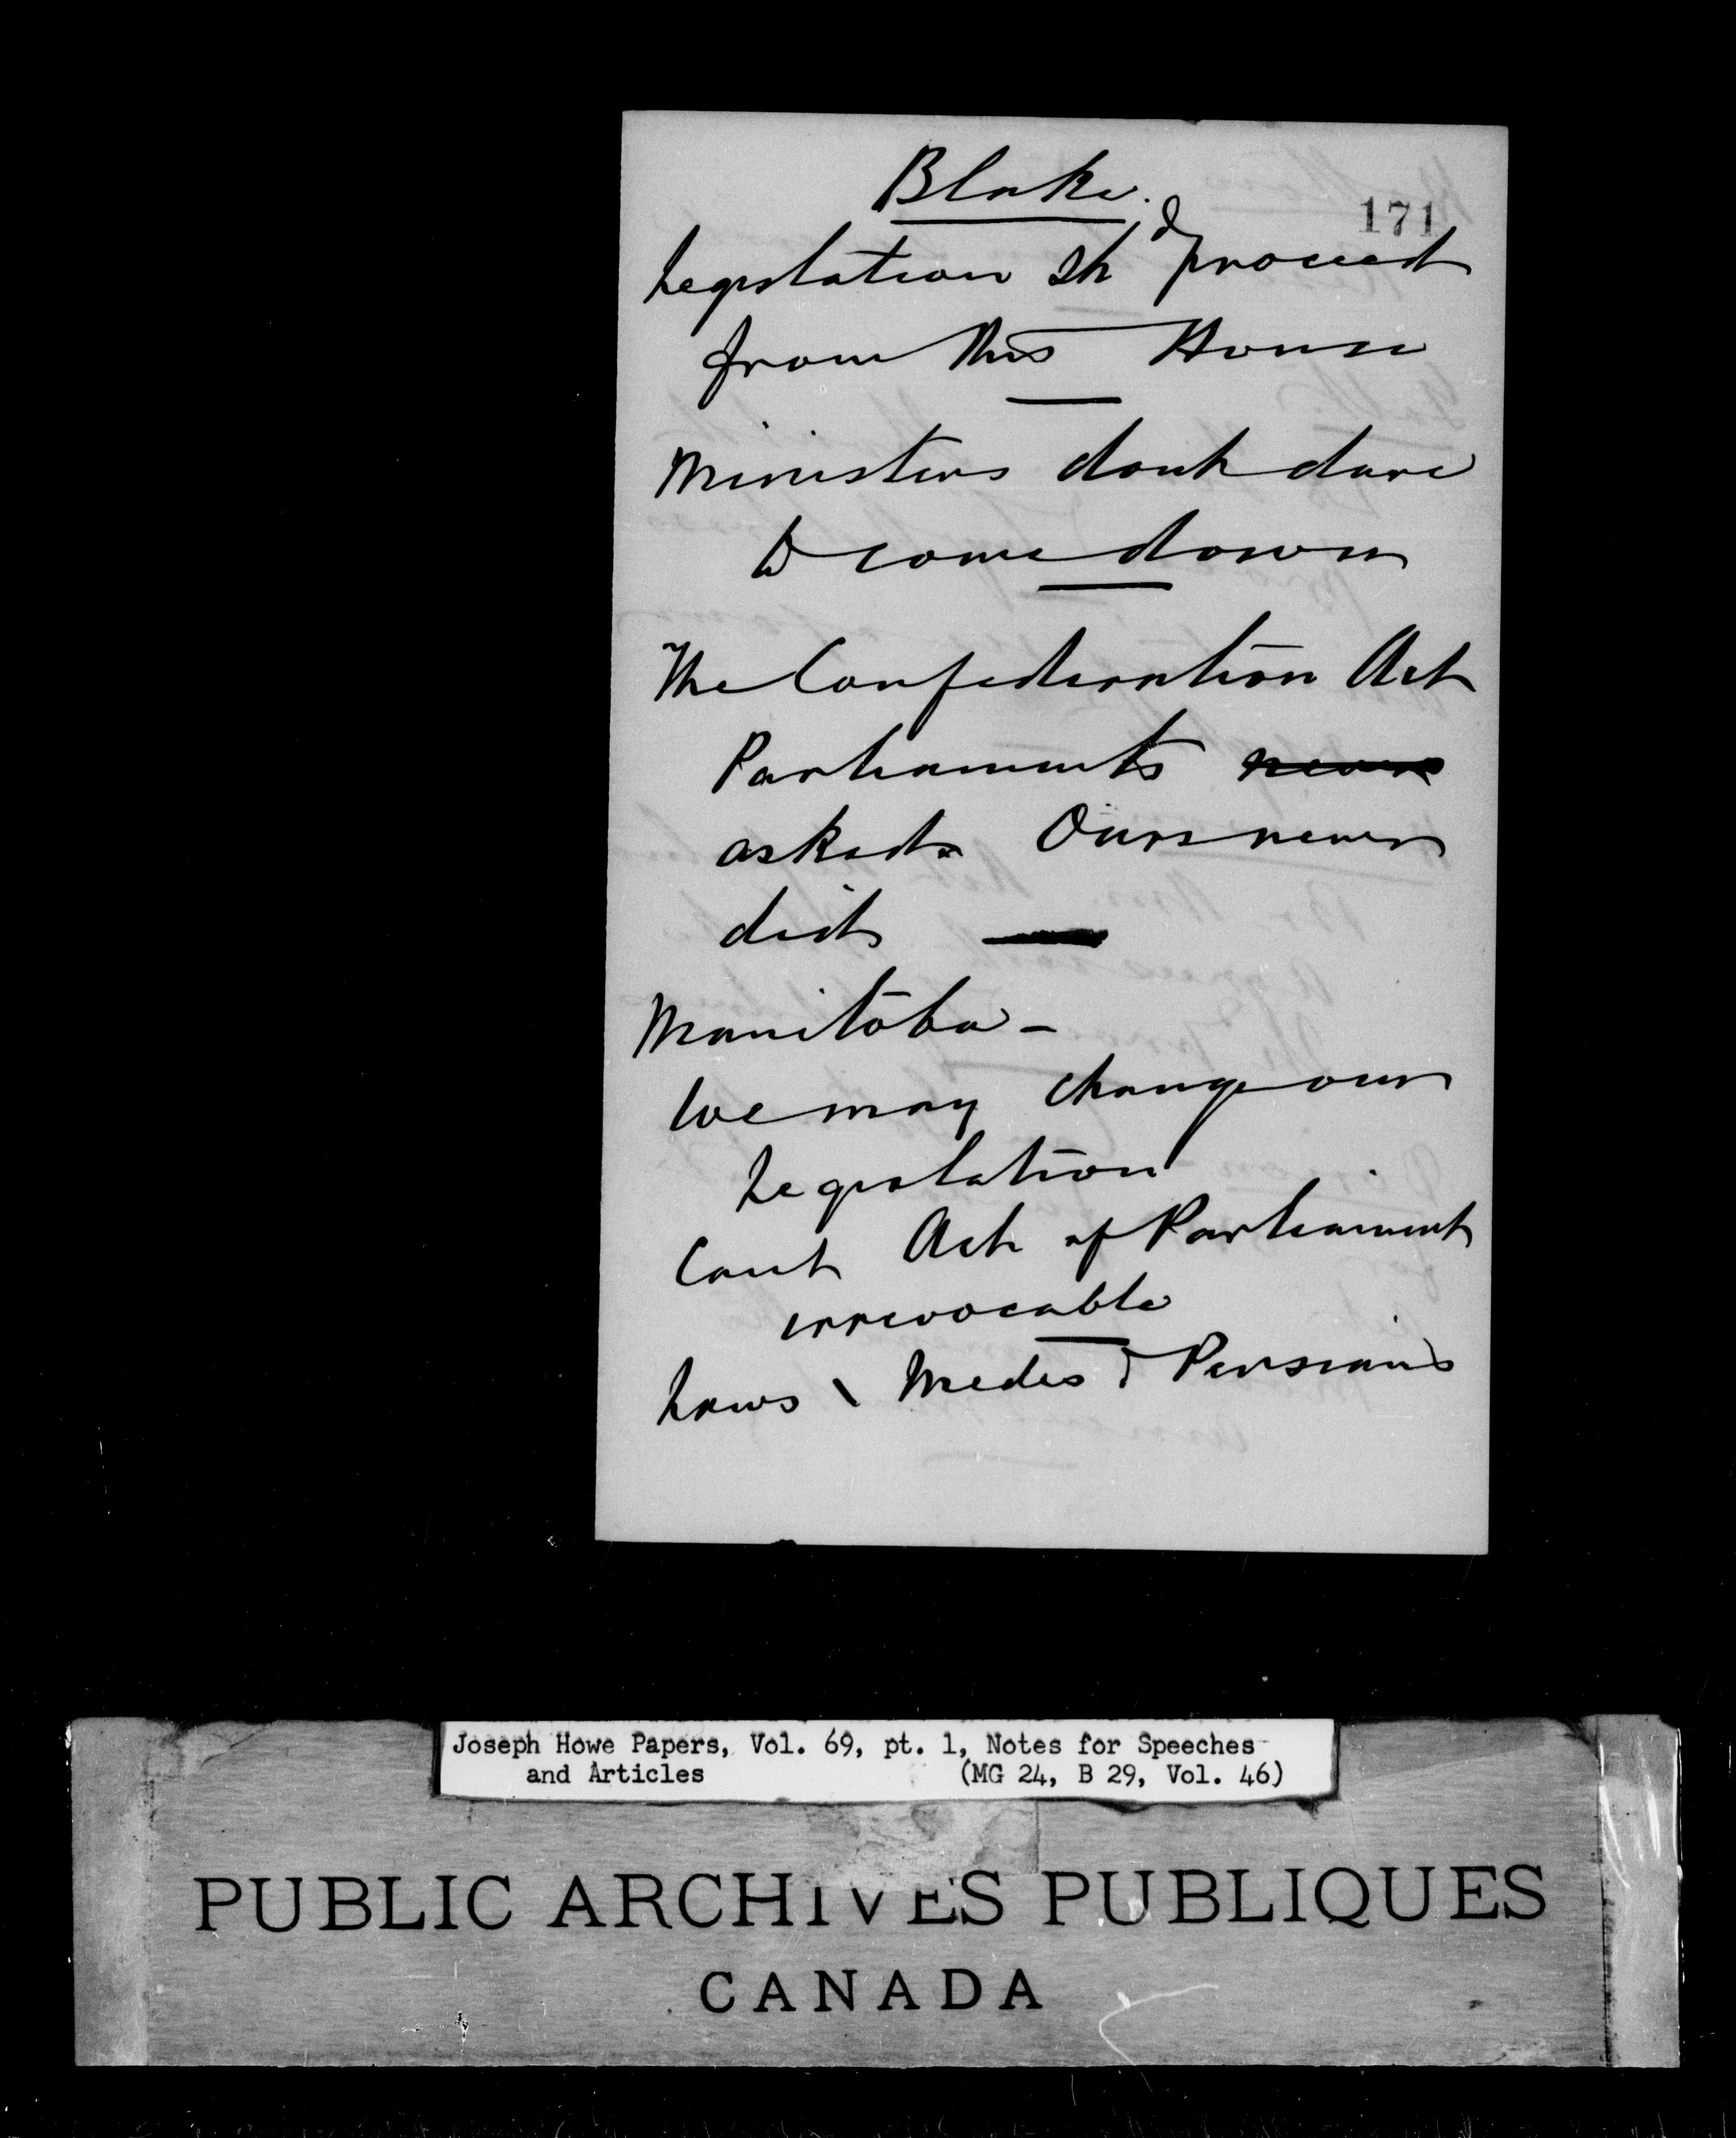 Blake.
171
Legislation shd proceed
from this House
Ministers dont dare
to come down
The Confederation Act
Parliaments never
asked. Ours never
did
Manitoba -
We may change our
Legislation
Cant Act of Parliament
irrevocable
Laws \ Medes & Persians
Joseph Howe Papers, Vol. 69, pt. 1, Notes for Speeches
and Articles (MG 24, B 29, Vol. 46)
PUBLIC ARCHIVES PUBLIQUES
CANADA